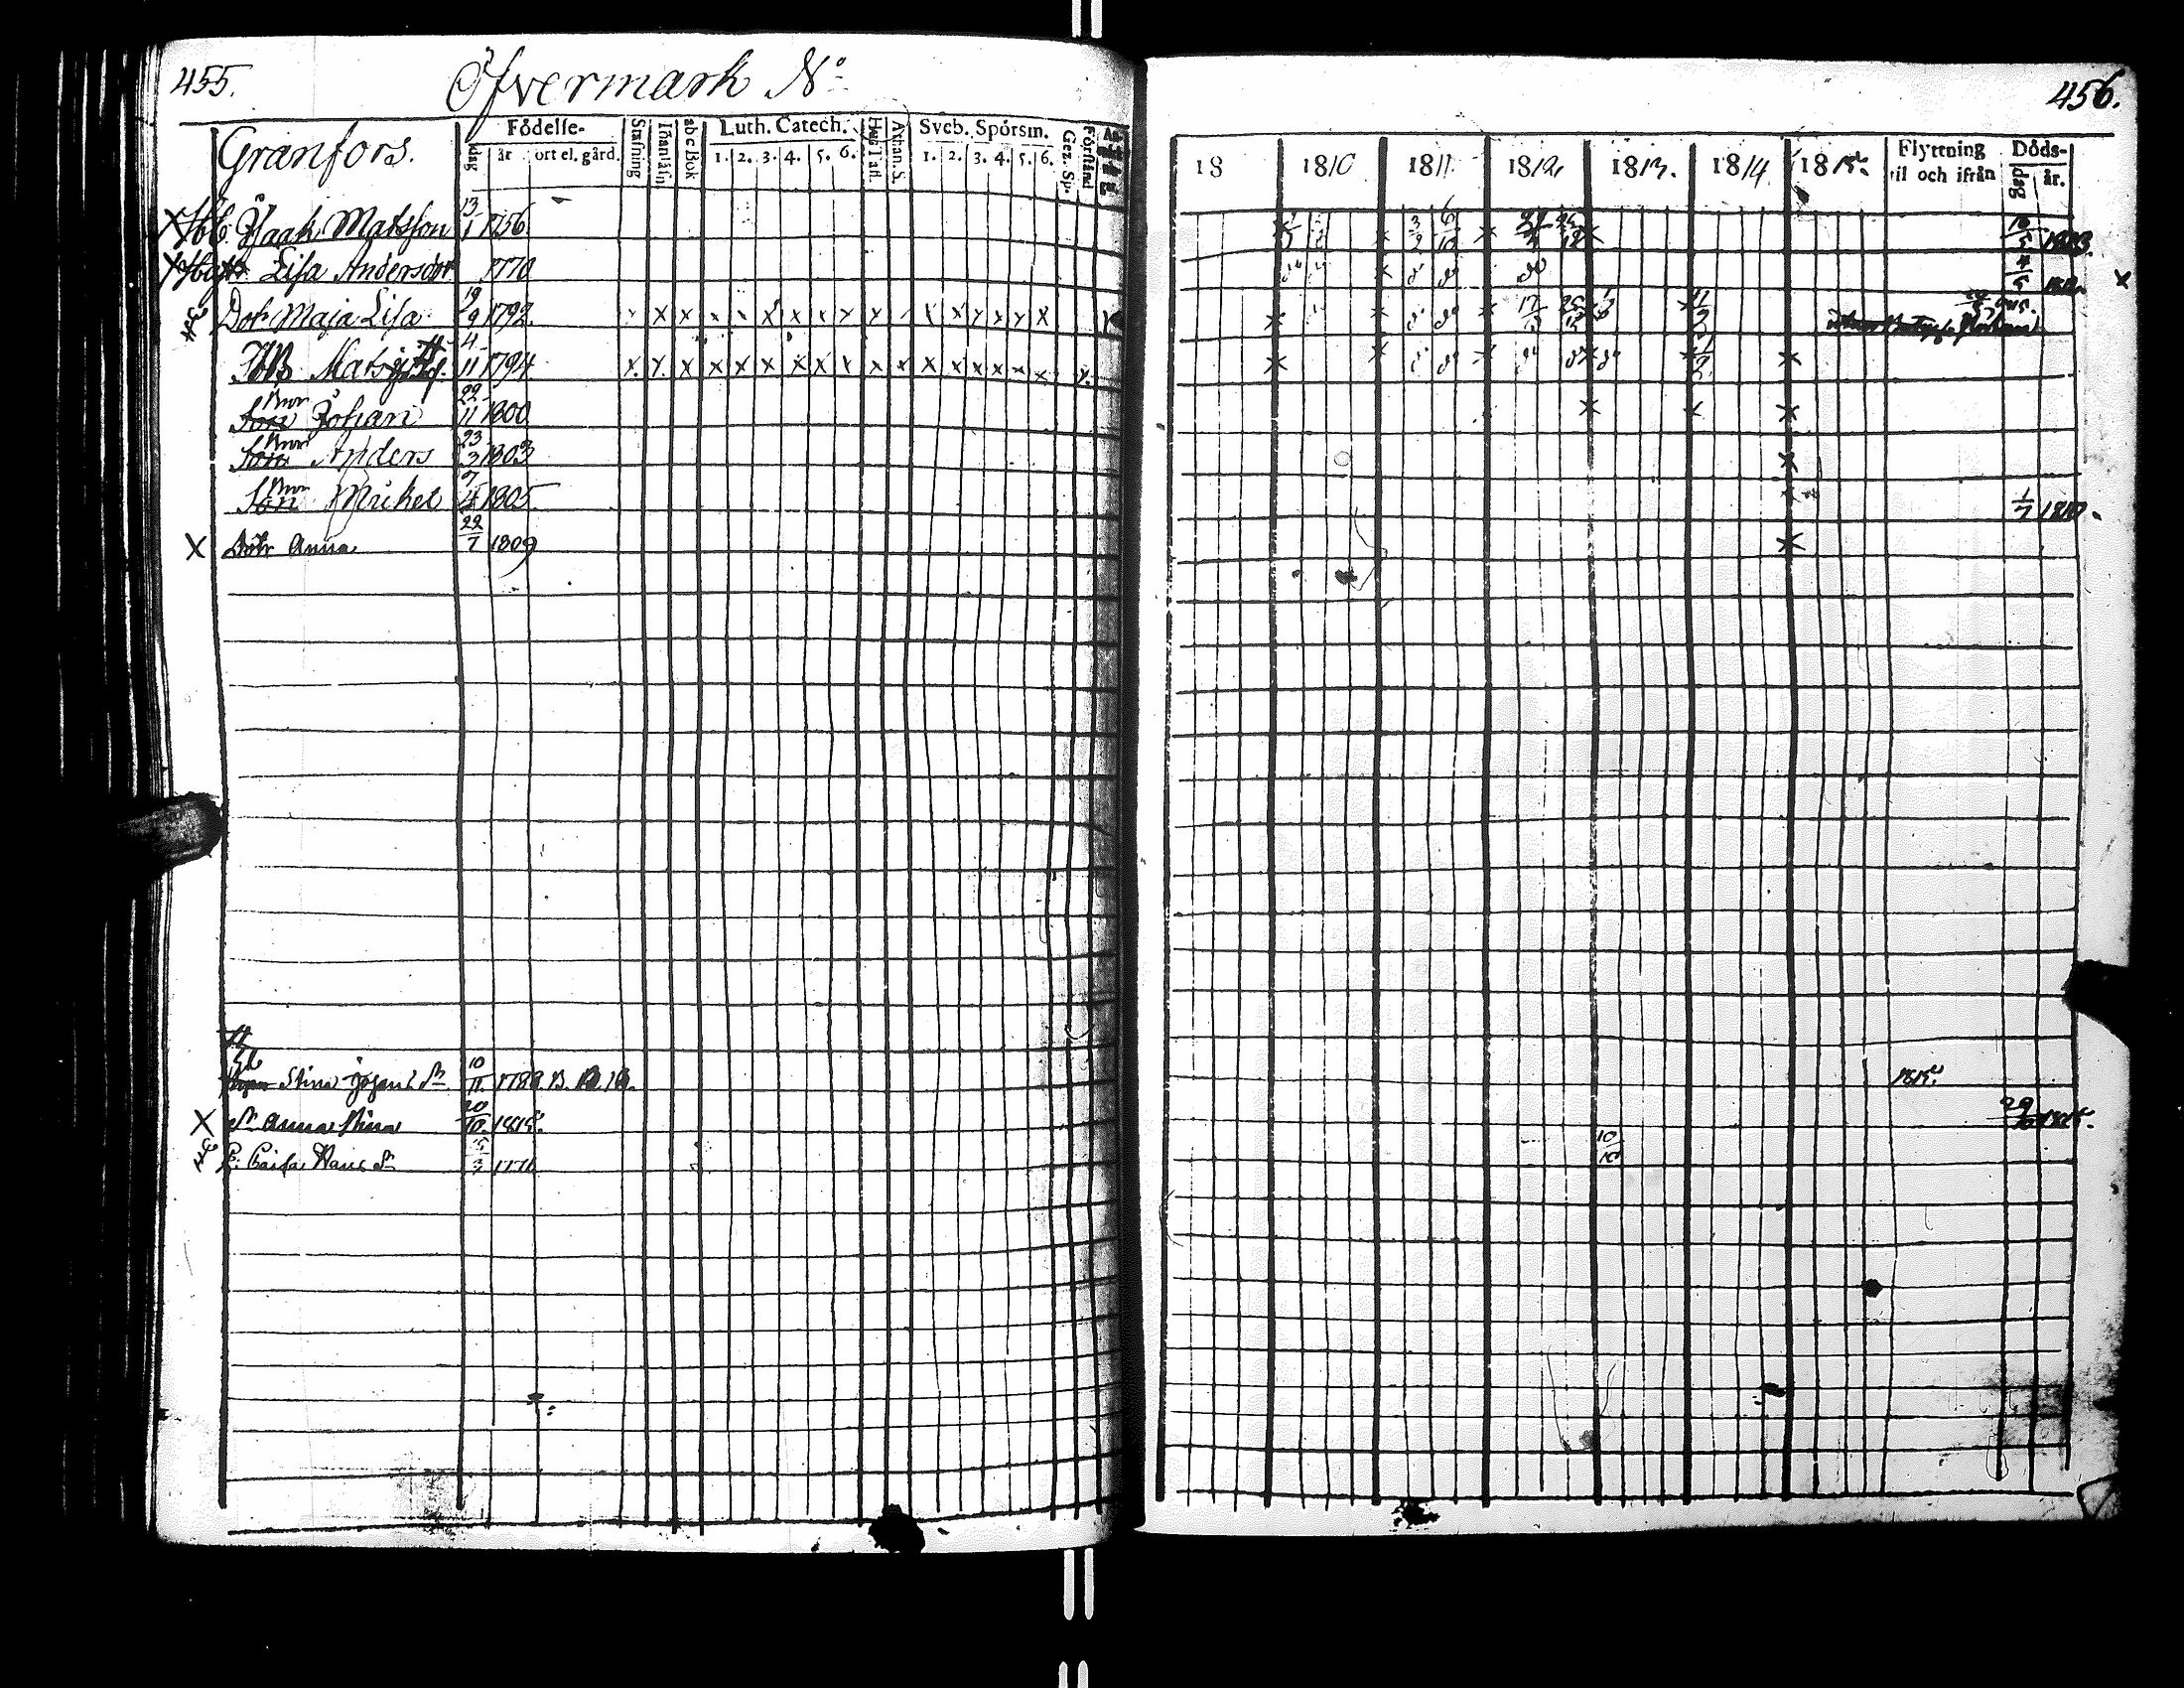 455.
Öfvermark No
Granfors.
Födelse-
dag
år
ort el. gård.
Stafning
Innanläsn
abc Bok
Luth. Catech.
1. 2. 3. 4. 5. 6.
Hus Tafl.
Athan. S.
Sveb. Spörsm.
1. 2. 3. 4. 5. 6.
Gez. Sp.
Förstånd
X Hbb. Isaak Matsson 13/1 1756
X Lisa Andersdotr 1770
Dotr Maja Lisa 19/9 1792. x x x x x x x x x x x x x x x x
Mats 4/11 1794 x. x. x x x x x x x x x x x x x x x. x.
Son Bror Johan 22/11 1800
Son Bror Anders 23/3 1803
Son Bror Mickel 7/4 1805
X Dotr Anna 22/7 1809
Stina Johans dr 10/11 1788.
X dr Anna Stina 20/10 1815.
Caisa Hans dr 5/3 1771
456.
18
1810
1811.
1812.
1813.
1814.
1815.
Flyttning
til och ifrån
Döds-
dag
år.
x x 3/9 6/10 x x 10/5 1813.
x do do do 4/5 1812. x
x x do do x 17/3 x
x x do do x do x x
x x x
x
x 1/7 1810.
x
1815.
29/10 1815.
10/10